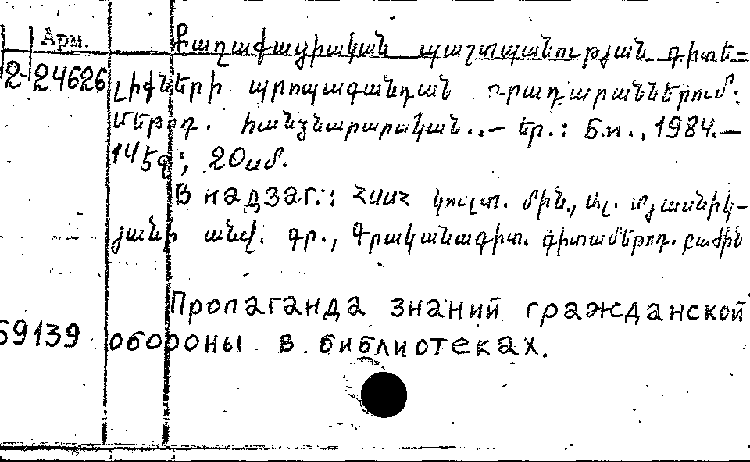 Арм. Քաղաքացիական պաշտպանության գիտե=
2-24626 լիքների պրոպագանդան գրադարաններում.
Մեթոդ. հանձնարարական..- Եր.: Б.и., 1984.-
14 էջ; 20սմ.
В надзаг.: ՀՍՍՀ կուլտ. մին., Ալ. Մյասնիկ-
յանի անվ. գր., Գրականագիտ. գիտամեթոդ. բաժին
Пропаганда знаний гражданской
59139 обороны в библиотеках.